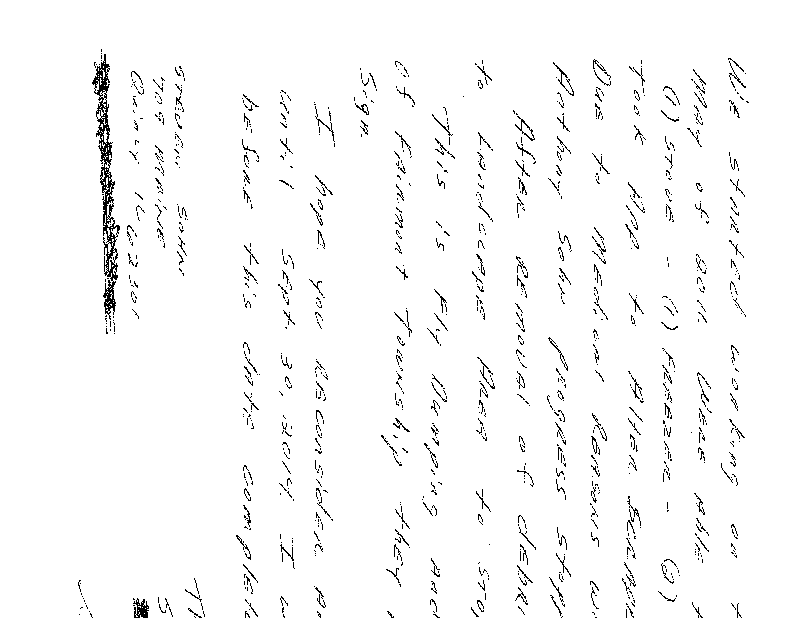 We started working on t
May of 2011 were Able t
(1) Stove - (1) Freezer - (2)
Took Him to Alter Scrap
Due to Medical Reasons wi
Anthony Sohn progress stopp
After Removal of debri
to landscape Area to stop
This is Fly Dumping Pad
of Fairmont Township they
Sign
I hope you Reconsider
until Sept 30, 2014 I w
before this date complet
Th
S
Steven Sohn
Quincy IL 62301